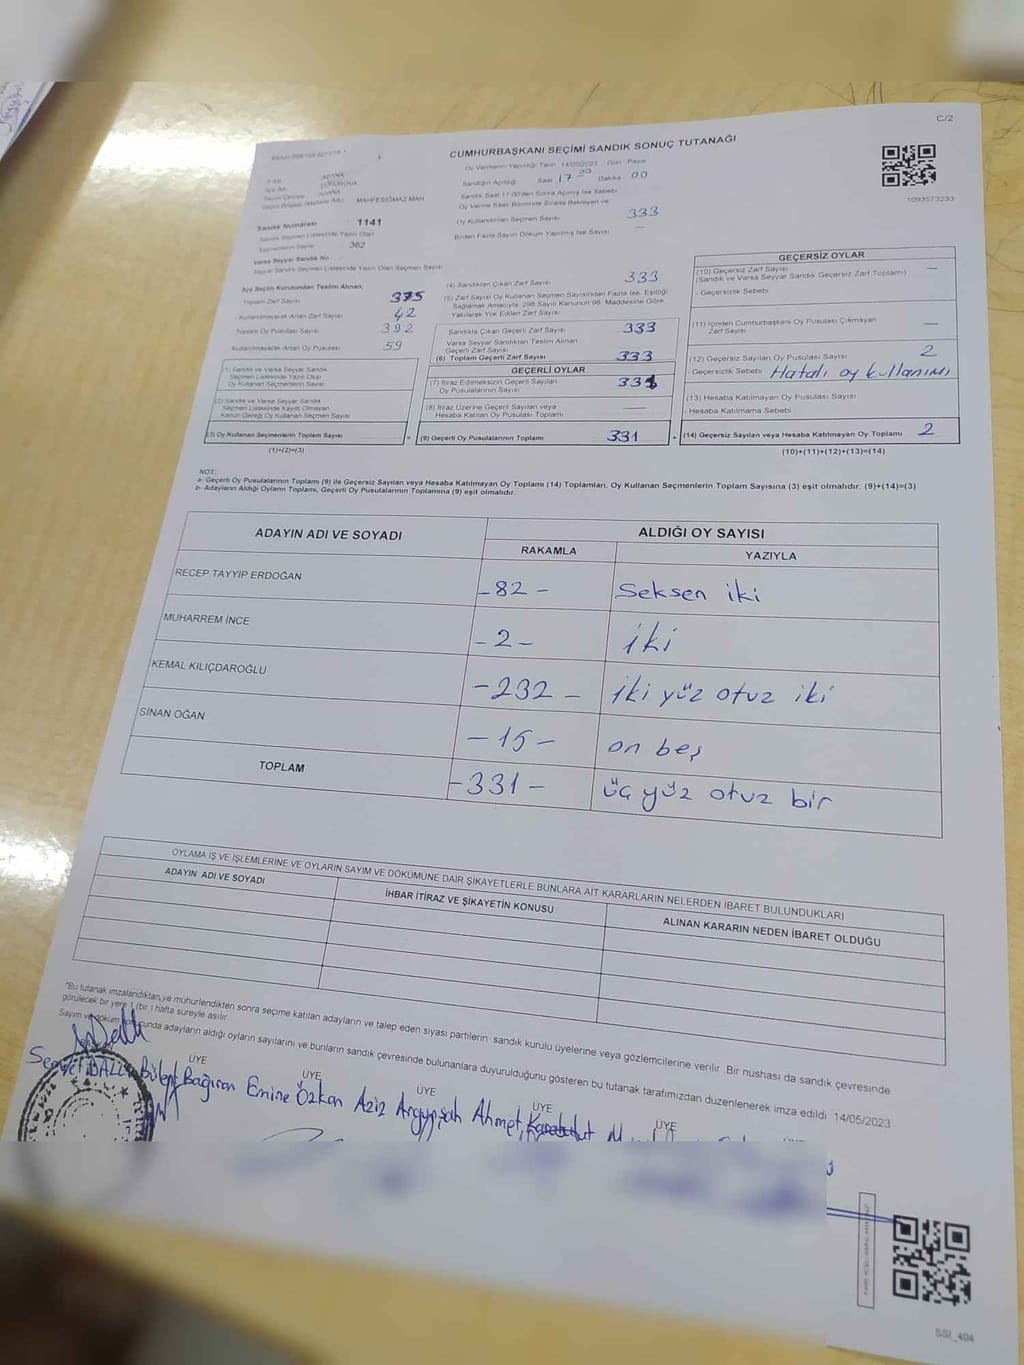 C/2
CUMHURBAŞKANI SEÇİMİ SANDIK SONUÇ TUTANAĞI
Oy Vermenin Yapıldığı Tarih : 14/05/2023 Gün : Pazar
Sandığın Açıldığı Saat 17 00 Dakika 00
Sandık Saat 17:00'den Sonra Açılmış İse Sebebi
Oy Verme Saati Bitiminde Sırada Bekleyen ve
Oy Kullandırılan Seçmen Sayısı 333
Birden Fazla Sayım Döküm Yapılmış İse Sayısı
1093573233
ADANA
ADANA
MAHFESIĞMAZ MAH
Sandık Numarası 1141
Sandık Seçmen Listesinde Yazılı Olan
Seçmenlerin Sayısı 362
Varsa Seyyar Sandık No
Seyyar Sandık Seçmen Listesinde Yazılı Olan Seçmen Sayısı
İlçe Seçim Kurulundan Teslim Alınan;
Toplam Zarf Sayısı 375
- Kullanılmayarak Artan Zarf Sayısı 42
Toplam Oy Pusulası Sayısı 392
Kullanılmayarak Artan Oy Pusulası 59
(1) Sandık ve Varsa Seyyar Sandık
Seçmen Listesinde Yazılı Olup
Oy Kullanan Seçmenlerin Sayısı
(2) Sandık ve Varsa Seyyar Sandık
Seçmen Listesinde Kayıtlı Olmayan
Kanun Gereği Oy Kullanan Seçmen Sayısı
(3) Oy Kullanan Seçmenlerin Toplam Sayısı
(1)+(2)=(3)
(4) Sandıktan Çıkan Zarf Sayısı 333
(5) Zarf Sayısı Oy Kullanan Seçmen Sayısından Fazla İse, Eşitliği
Sağlamak Amacıyla, 298 Sayılı Kanunun 98. Maddesine Göre
Yakılarak Yok Edilen Zarf Sayısı
Sandıkta Çıkan Geçerli Zarf Sayısı 333
Varsa Seyyar Sandıktan Teslim Alınan
Geçerli Zarf Sayısı
(6) Toplam Geçerli Zarf Sayısı 333
GEÇERLİ OYLAR
(7) İtiraz Edilmeksizin Geçerli Sayılan
Oy Pusulalarının Sayısı 331
(8) İtiraz Üzerine Geçerli Sayılan veya
Hesaba Katılan Oy Pusulası Toplamı
= (9) Geçerli Oy Pusulalarının Toplamı 331
GEÇERSİZ OYLAR
(10) Geçersiz Zarf Sayısı
(Sandık ve Varsa Seyyar Sandık Geçersiz Zarf Toplamı)
- Geçersizlik Sebebi
(11) İçinden Cumhurbaşkanı Oy Pusulası Çıkmayan
Zarf Sayısı
(12) Geçersiz Sayılan Oy Pusulası Sayısı 2
- Geçersizlik Sebebi Hatalı oy kullanımı
(13) Hesaba Katılmayan Oy Pusulası Sayısı
- Hesaba Katılmama Sebebi
+ (14) Geçersiz Sayılan veya Hesaba Katılmayan Oy Toplamı 2
(10)+(11)+(12)+(13)=(14)
NOT:
a- Geçerli Oy Pusulalarının Toplamı (9) ile Geçersiz Sayılan veya Hesaba Katılmayan Oy Toplamı (14) Toplamları, Oy Kullanan Seçmenlerin Toplam Sayısına (3) eşit olmalıdır. (9)+(14)=(3)
b- Adayların Aldığı Oyların Toplamı, Geçerli Oy Pusulalarının Toplamına (9) eşit olmalıdır.
ADAYIN ADI VE SOYADI ALDIĞI OY SAYISI
RAKAMLA YAZIYLA
RECEP TAYYİP ERDOĞAN -82- Seksen iki
MUHARREM İNCE -2- iki
KEMAL KILIÇDAROĞLU -232- iki yüz otuz iki
SİNAN OĞAN -15- on beş
TOPLAM -331- üç yüz otuz bir
OYLAMA İŞ VE İŞLEMLERİNE VE OYLARIN SAYIM VE DÖKÜMÜNE DAİR ŞİKAYETLERLE BUNLARA AİT KARARLARIN NELERDEN İBARET BULUNDUKLARI
ADAYIN ADI VE SOYADI İHBAR İTİRAZ VE ŞİKAYETİN KONUSU ALINAN KARARIN NEDEN İBARET OLDUĞU
"Bu tutanak imzalandıktan ve mühürlendikten sonra seçime katılan adayların ve talep eden siyasi partilerin sandık kurulu üyelerine veya gözlemcilerine verilir. Bir nüshası da sandık çevresinde
görülecek bir yere 1 (bir) hafta süreyle asılır.
Sayım ve döküm sonucunda adayların aldığı oyların sayılarını ve bunların sandık çevresinde bulunanlara duyurulduğunu gösteren bu tutanak tarafımızdan düzenlenerek imza edildi. 14/05/2023
ÜYE ÜYE ÜYE ÜYE ÜYE
Bülent Bağıran Emine Özkan Aziz Ahmet
SSI_404